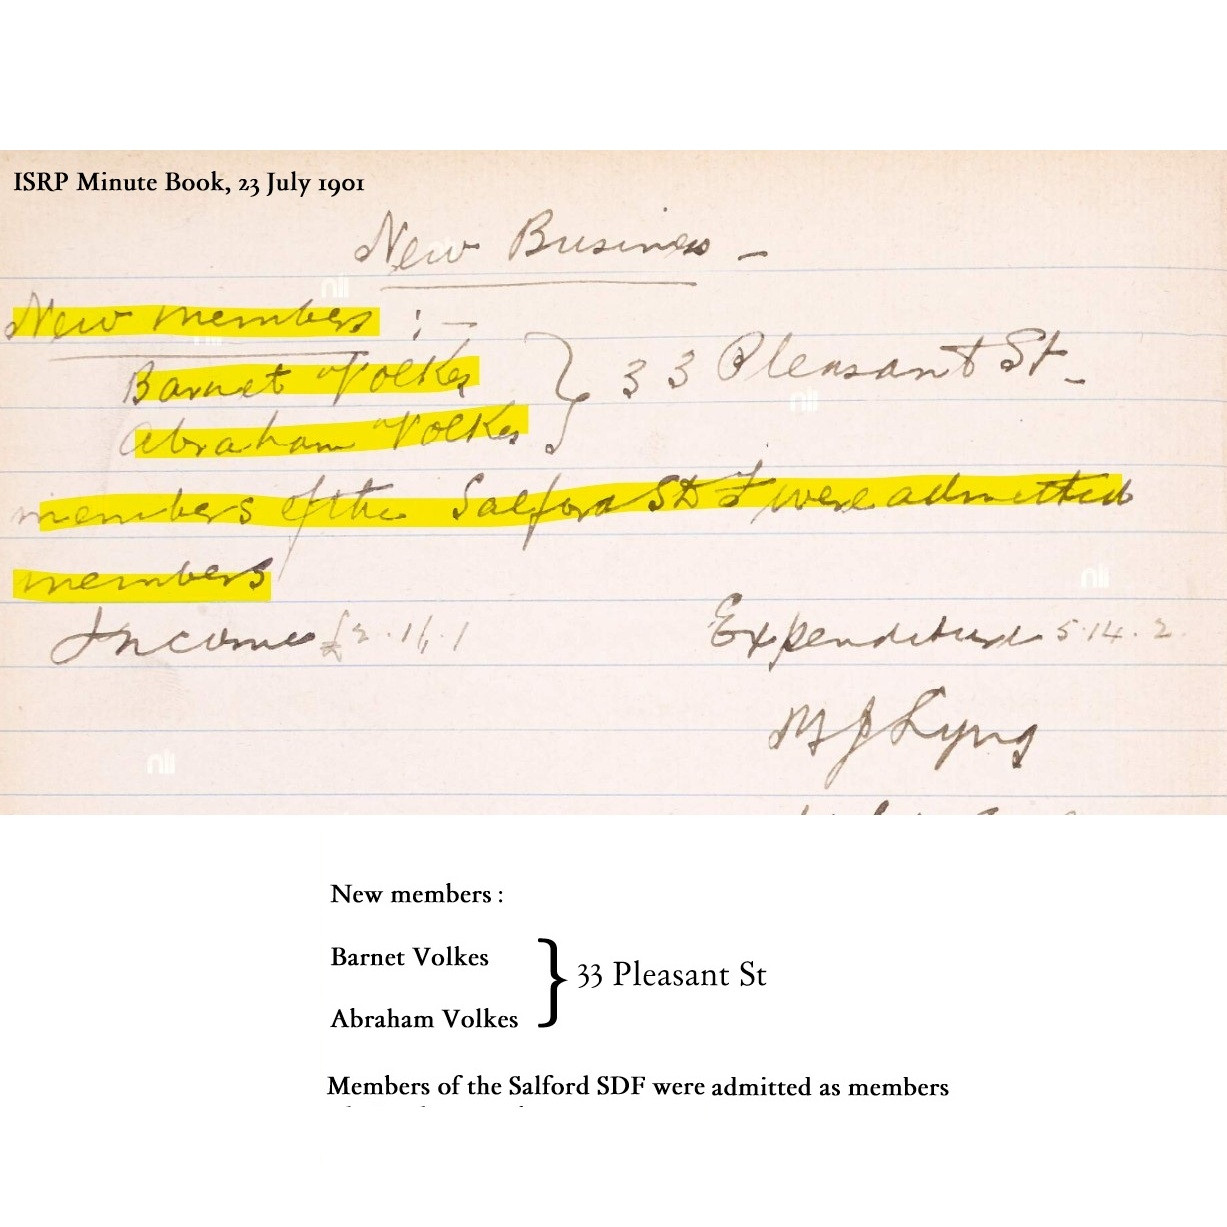 ISRP Minute Book, 23 July 1901
New Business -
New members :-
Barnet Volkes
Abraham Volkes
} 33 Pleasant St -
members of the Salford SDF were admitted
members
Income £2.16.1
Expenditure 5.14.2.
M J Lyng
New members :
Barnet Volkes
Abraham Volkes
} 33 Pleasant St
Members of the Salford SDF were admitted as members